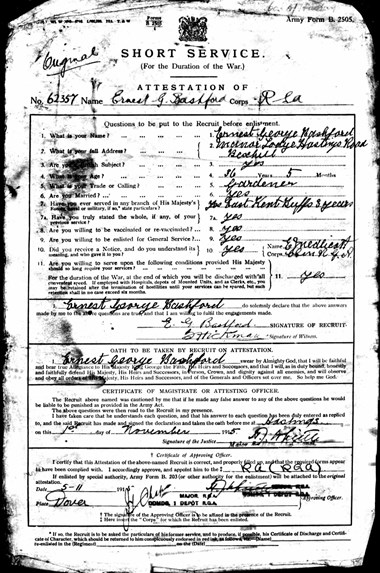 Army Form B. 2505.
Original
SHORT SERVICE.
(For the Duration of the War.)
ATTESTATION OF
No. 62357 Name Ernest G. Bashford Corps R Ga
Questions to be put to the Recruit before enlistment.
1. What is your Name? 1. Ernest George Bashford
2. What is your full Address? 2. Lodge Hastings Road
Bexhill
3. Are you British Subject? 3. Yes
4. What is your Age? 4. 36 Years 5 Months
5. What is your Trade or Calling? 5. Gardener
6. Are you Married? 6. Yes
7. Have you ever served in any branch of His Majesty's 7. Yes East Kent Buffs 3 years
Forces, naval or military, if so, state particulars?
7a. Have you truly stated the whole, if any, of your 7a. Yes
previous service?
8. Are you willing to be vaccinated or re-vaccinated? 8. Yes
9. Are you willing to be enlisted for General Service? 9. Yes
10. Did you receive a Notice, and do you understand its 10. Yes Name
meaning, and who gave it to you? Corps
11. Are you willing to serve upon the following conditions provided His Majesty
should so long require your services?
For the duration of the War, at the end of which you will be discharged with all 11. Yes
convenient speed. If employed with Hospitals, depots of Mounted Units, and as Clerks, etc., you
may be retained after the termination of hostilities until your services can be spared, but such
retention shall in no case exceed six months.
I, Ernest George Bashford do solemnly declare that the above answers
made by me to the above questions are true, and that I am willing to fulfil the engagements made.
E. G. Bashford SIGNATURE OF RECRUIT.
Signature of Witness.
OATH TO BE TAKEN BY RECRUIT ON ATTESTATION.
I, Ernest George Bashford swear by Almighty God, that I will be faithful
and bear true Allegiance to His Majesty King George the Fifth, His Heirs and Successors, and that I will, as in duty bound, honestly and
faithfully defend His Majesty, His Heirs and Successors, in Person, Crown, and Dignity against all enemies, and will observe
and obey all orders of His Majesty, His Heirs and Successors, and of the Generals and Officers set over me. So help me God.
CERTIFICATE OF MAGISTRATE OR ATTESTING OFFICER.
The Recruit above named was cautioned by me that if he made any false answer to any of the above questions he would
be liable to be punished as provided in the Army Act.
The above questions were then read to the Recruit in my presence.
I have taken care that he understands each question, and that his answer to each question has been duly entered as replied
to, and the said Recruit has made and signed the declaration and taken the oath before me at Hastings
on this 1st day of November 1915
Signature of the Justice
† Certificate of Approving Officer.
I certify that this Attestation of the above-named Recruit is correct, and properly filled up, and that the required forms appear
to have been complied with. I accordingly approve, and appoint him to the ‡ RGa
If enlisted by special authority, Army Form B. 203 (or other authority for the enlistment) will be attached to the original
attestation.
Date 3-11 191
Place Dover
MAJOR R.G.A.
COMDG. 1 DEPÔT R.G.A.
Approving Officer.
† The signature of the Approving Officer is to be affixed in the presence of the Recruit.
‡ Here insert the "Corps" for which the Recruit has been enlisted.
* If so, the Recruit is to be asked the particulars of his former service, and to produce, if possible, his Certificate of Discharge and Certificate
of Character, which should be returned to him
re-enlisted in the (Regiment) on the (Date)